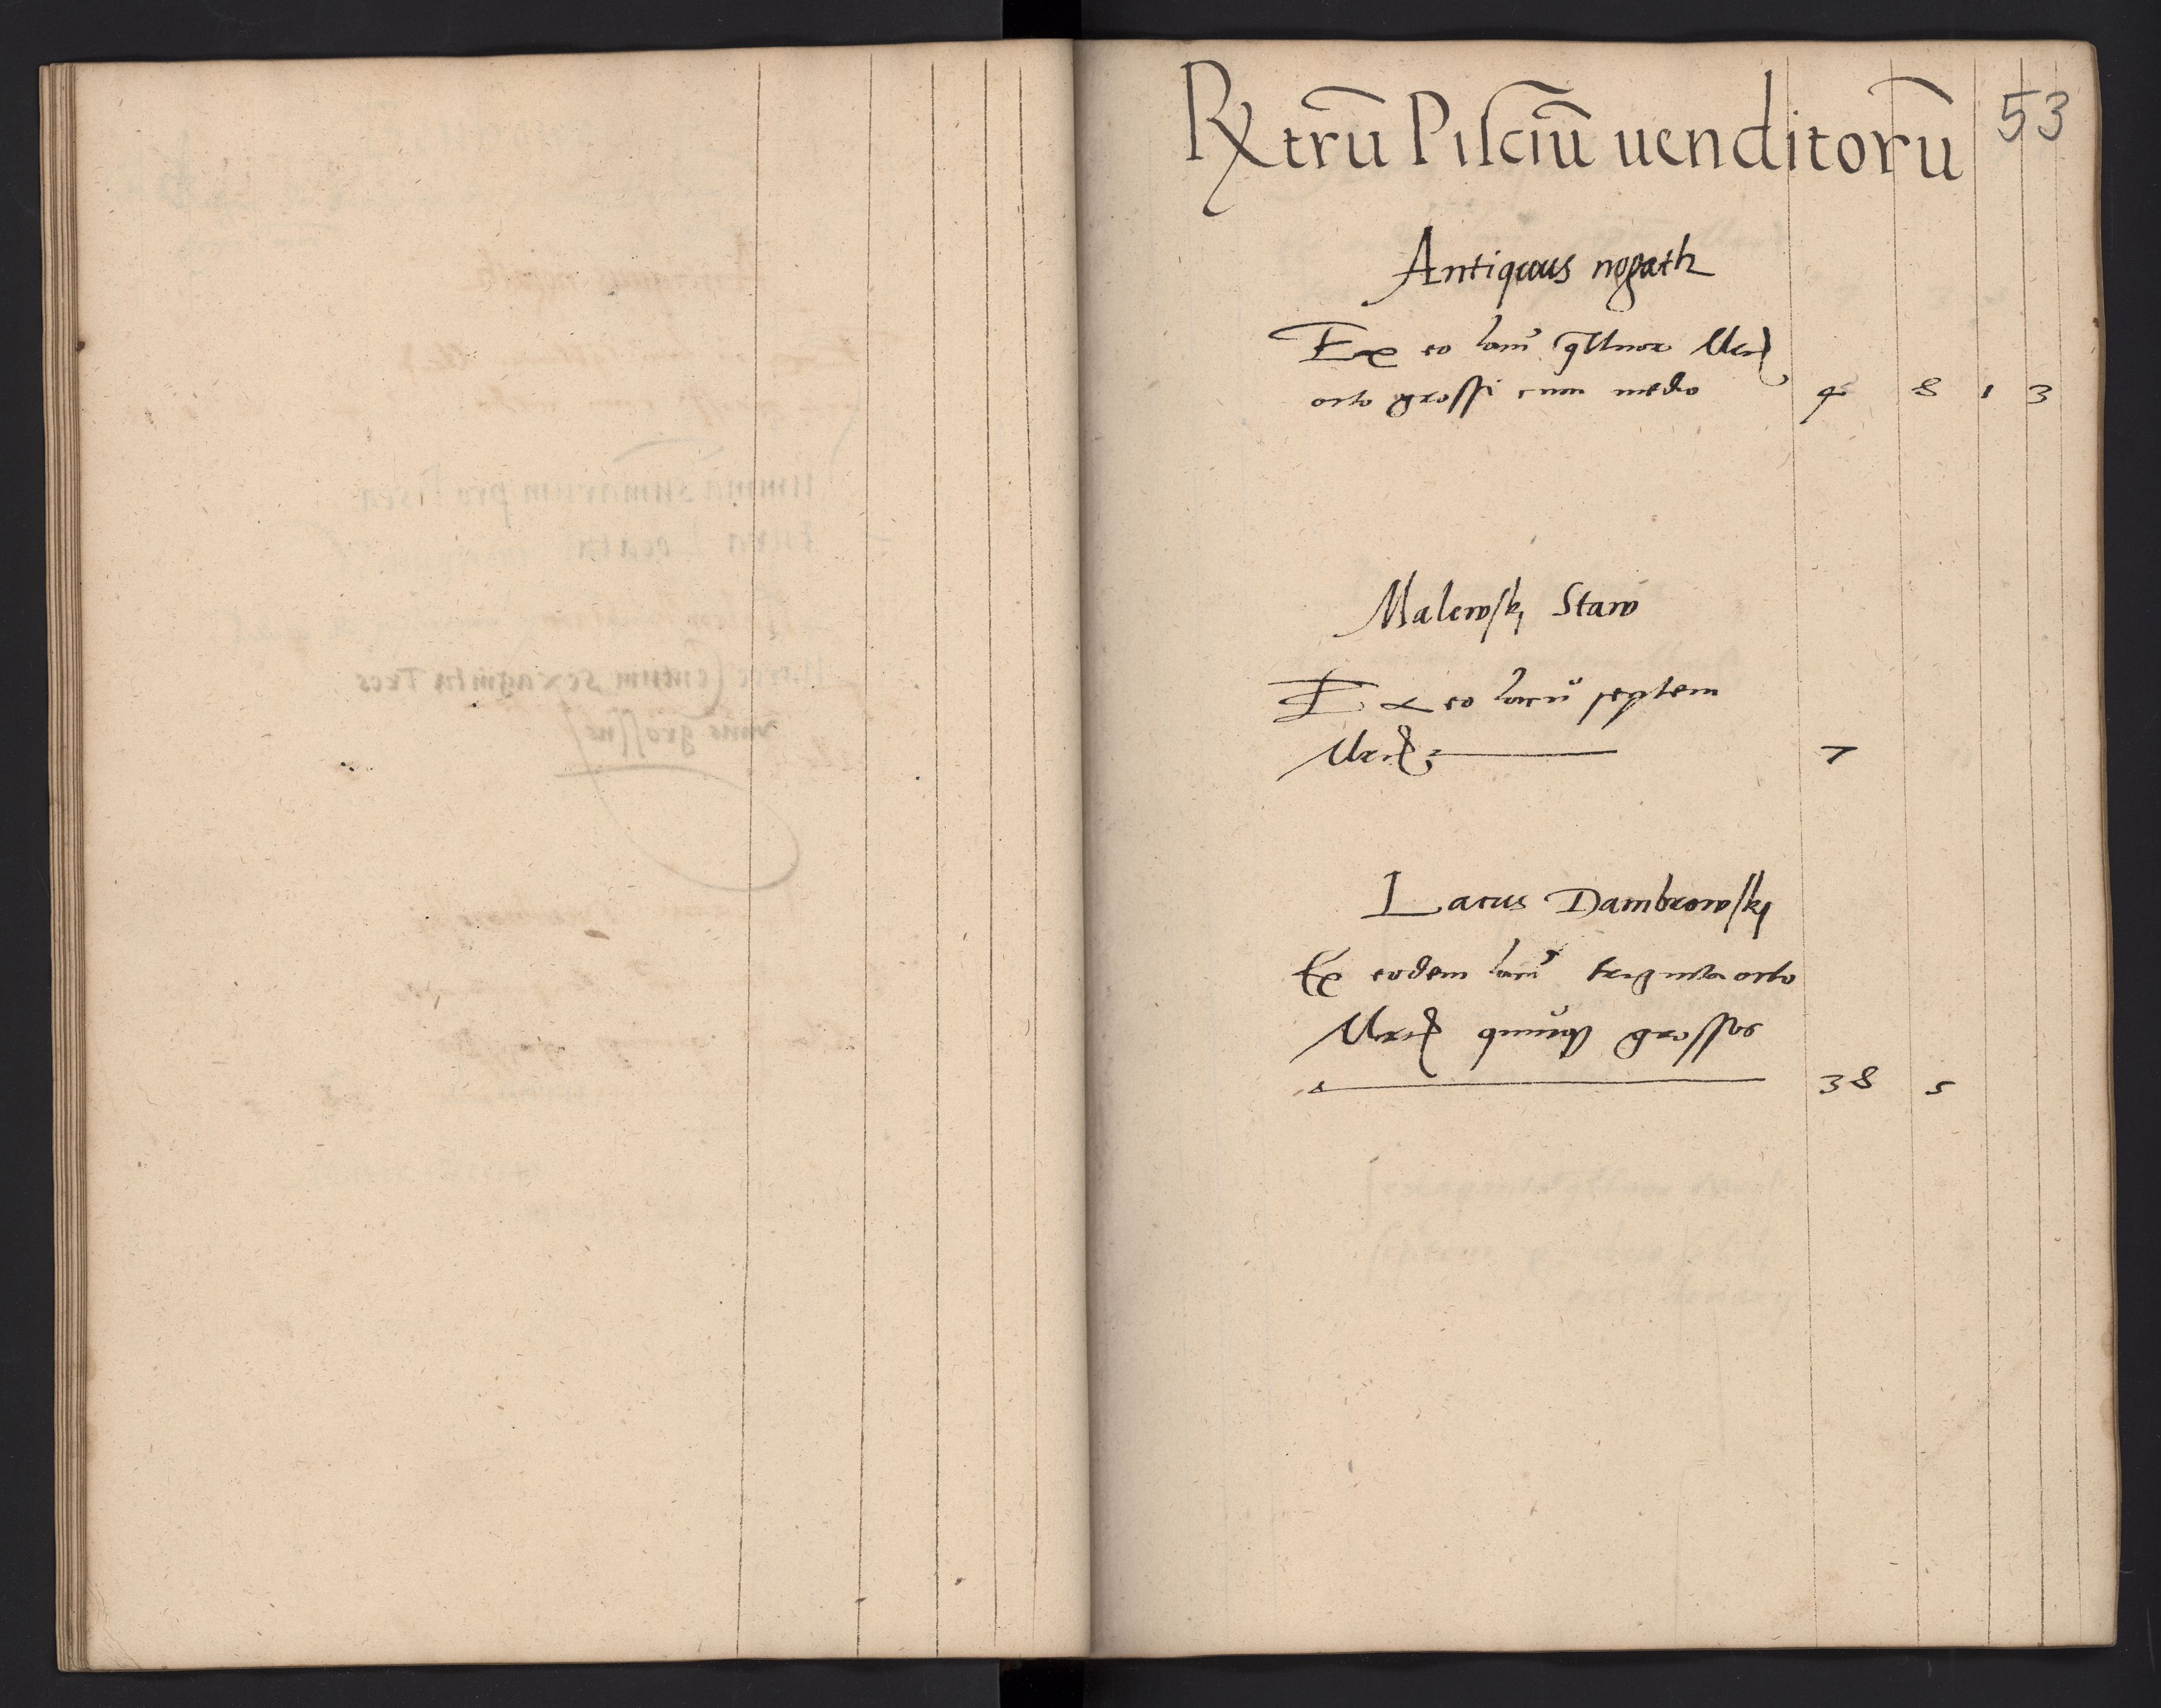 53
Rxtrū Piſciū uenditorū
Antiquus nogath
Ex eo lacu qttuor Mrc
octo grossi cum medio 4 8 1 3
Malewskj Staw
Ex eo lacu septem
Mrc 7
Lacus Dambrowskj
Ex eodem lacu triginta octo
Mrc quinq grossos
38 5